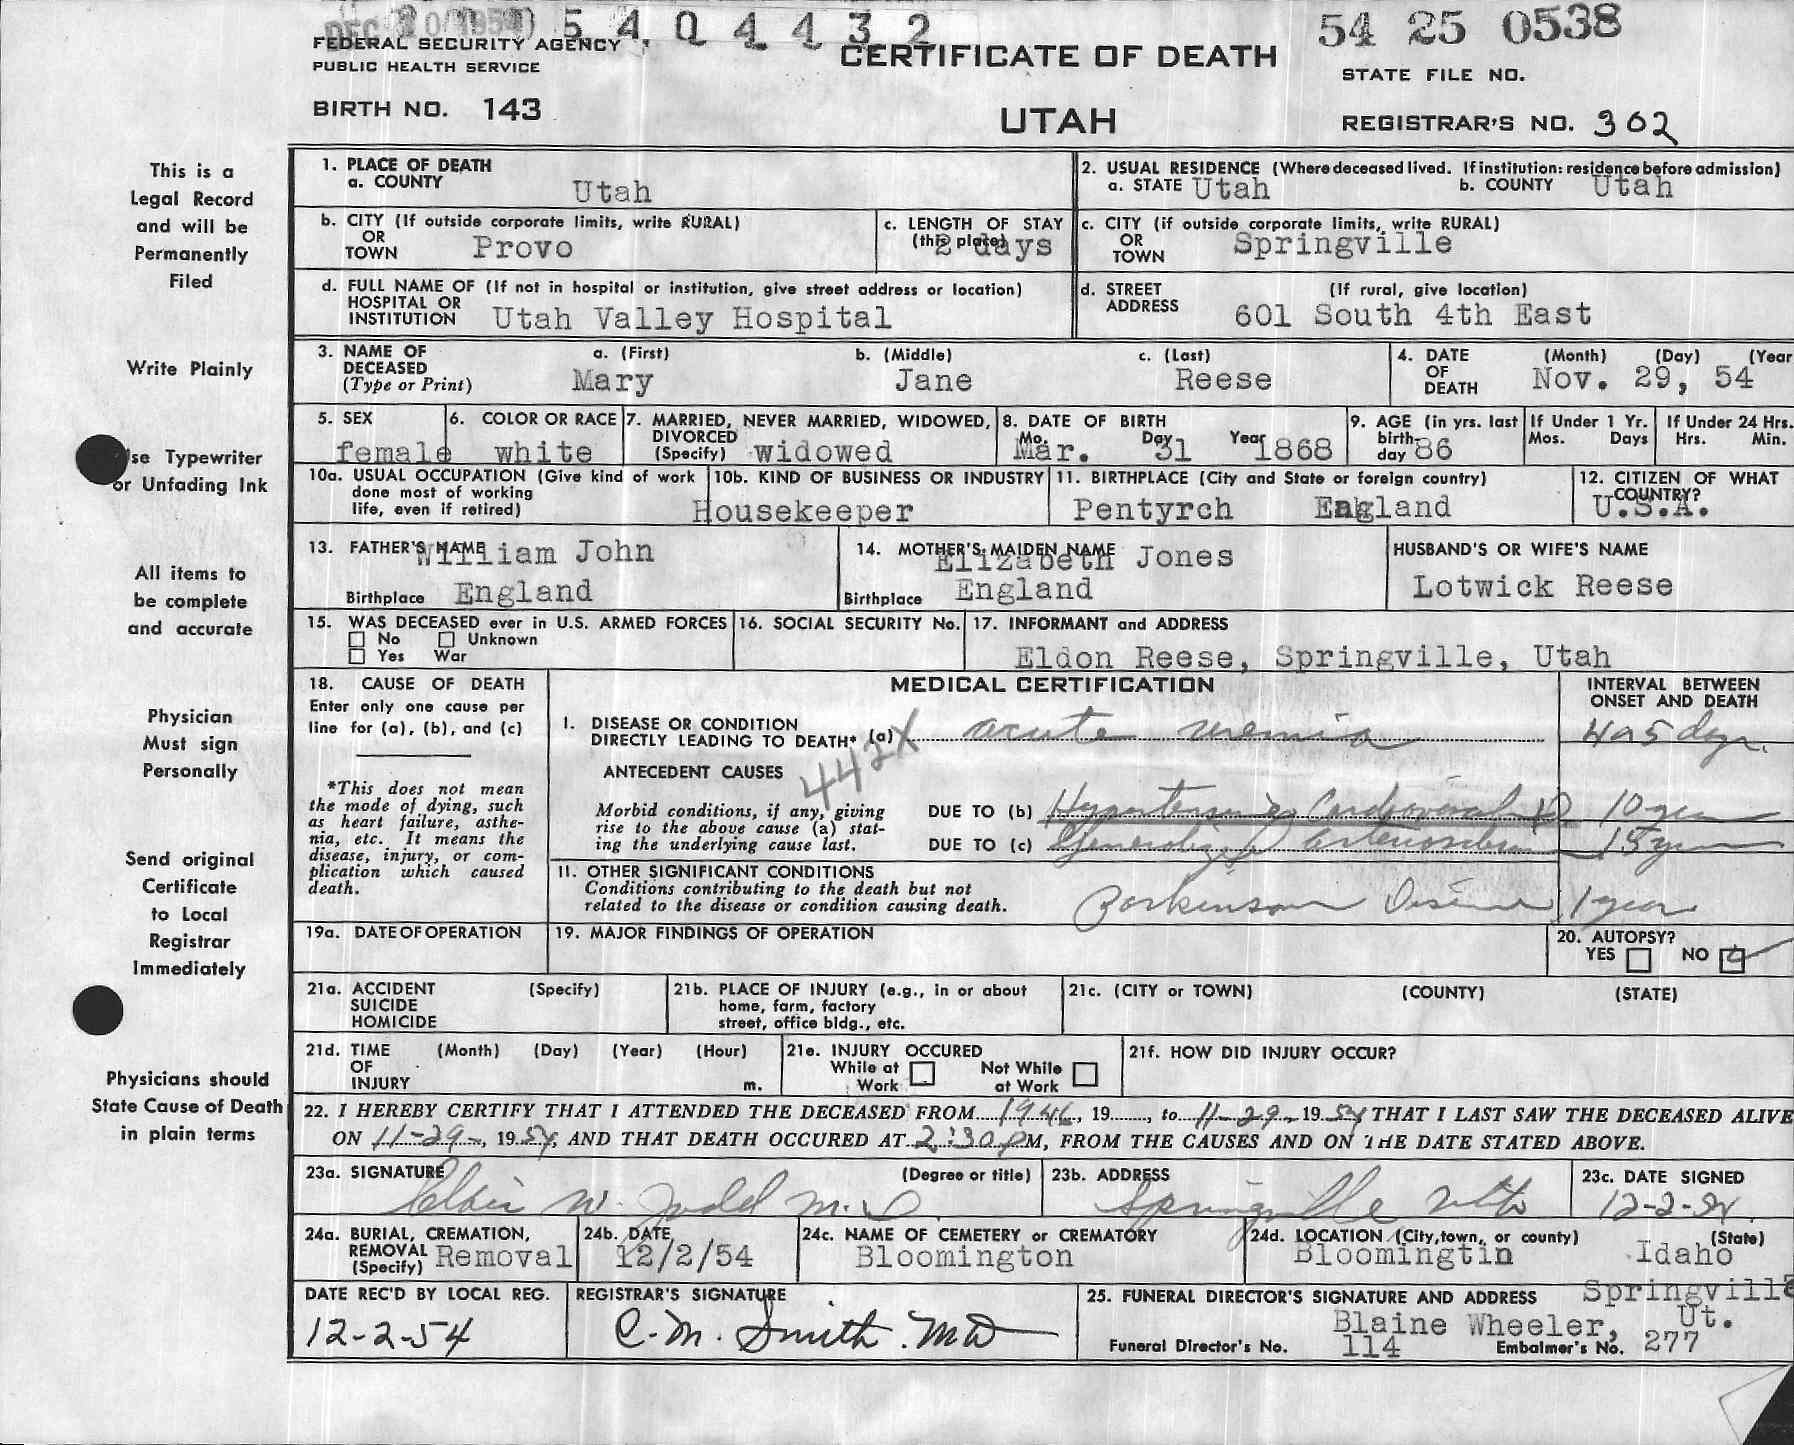 5 4 0 4 4 3 2
54 25 0538
FEDERAL SECURITY AGENCY
PUBLIC HEALTH SERVICE
CERTIFICATE OF DEATH
STATE FILE NO.
BIRTH NO. 143
UTAH
REGISTRAR'S NO. 362
This is a
Legal Record
and will be
Permanently
Filed
Write Plainly
se Typewriter
or Unfading Ink
All items to
be complete
and accurate
Physician
Must sign
Personally
Send original
Certificate
to Local
Registrar
Immediately
Physicians should
State Cause of Death
in plain terms
1. PLACE OF DEATH
a. COUNTY Utah
2. USUAL RESIDENCE (Where deceased lived. If institution: residence before admission)
a. STATE Utah b. COUNTY Utah
b. CITY (If outside corporate limits, write RURAL)
OR
TOWN Provo
c. LENGTH OF STAY
(this place) 2 days
c. CITY (if outside corporate limits, write RURAL)
OR
TOWN Springville
d. FULL NAME OF (If not in hospital or institution, give street address or location)
HOSPITAL OR
INSTITUTION Utah Valley Hospital
d. STREET (If rural, give location)
ADDRESS 601 South 4th East
3. NAME OF a. (First) b. (Middle) c. (Last)
DECEASED
(Type or Print) Mary Jane Reese
4. DATE (Month) (Day) (Year
OF
DEATH Nov. 29, 54
5. SEX
female
6. COLOR OR RACE
white
7. MARRIED, NEVER MARRIED, WIDOWED,
DIVORCED
(Specify) widowed
8. DATE OF BIRTH
Mo. Day Year
Mar. 31 1868
9. AGE (in yrs. last
birth
day 86
If Under 1 Yr.
Mos. Days
If Under 24 Hrs.
Hrs. Min.
10a. USUAL OCCUPATION (Give kind of work
done most of working
life, even if retired)
10b. KIND OF BUSINESS OR INDUSTRY
Housekeeper
11. BIRTHPLACE (City and State or foreign country)
Pentyrch England
12. CITIZEN OF WHAT
COUNTRY?
U.S.A.
13. FATHER'S NAME William John
Birthplace England
14. MOTHER'S MAIDEN NAME Elizabeth Jones
Birthplace England
HUSBAND'S OR WIFE'S NAME
Lotwick Reese
15. WAS DECEASED ever in U.S. ARMED FORCES
No Unknown
Yes War
16. SOCIAL SECURITY No.
17. INFORMANT and ADDRESS
Eldon Reese, Springville, Utah
18. CAUSE OF DEATH
Enter only one cause per
line for (a), (b), and (c)
*This does not mean
the mode of dying, such
as heart failure, asthe-
nia, etc. It means the
disease, injury, or com-
plication which caused
death.
MEDICAL CERTIFICATION
INTERVAL BETWEEN
ONSET AND DEATH
I. DISEASE OR CONDITION
DIRECTLY LEADING TO DEATH* (a) acute uremia
442X
ANTECEDENT CAUSES
Morbid conditions, if any, giving
rise to the above cause (a) stat-
ing the underlying cause last.
DUE TO (b) Hypertensive 10 years
DUE TO (c) Generalized 15 years
11. OTHER SIGNIFICANT CONDITIONS
Conditions contributing to the death but not
related to the disease or condition causing death.
Parkinson Disease 1 year
19a. DATE OF OPERATION
19. MAJOR FINDINGS OF OPERATION
20. AUTOPSY?
YES NO
21a. ACCIDENT (Specify)
SUICIDE
HOMICIDE
21b. PLACE OF INJURY (e.g., in or about
home, farm, factory
street, office bldg., etc.
21c. (CITY or TOWN) (COUNTY) (STATE)
21d. TIME (Month) (Day) (Year) (Hour)
OF
INJURY m.
21e. INJURY OCCURED
While at Not While
Work at Work
21f. HOW DID INJURY OCCUR?
22. I HEREBY CERTIFY THAT I ATTENDED THE DECEASED FROM 1946, 19 , to 11-29- 1954 THAT I LAST SAW THE DECEASED ALIVE
ON 11-29-, 1954, AND THAT DEATH OCCURED AT 2:30 PM, FROM THE CAUSES AND ON THE DATE STATED ABOVE.
23a. SIGNATURE (Degree or title)
W. Judd M.D
23b. ADDRESS
Springville Utah
23c. DATE SIGNED
12-2-54
24a. BURIAL, CREMATION,
REMOVAL
(Specify) Removal
24b. DATE
12/2/54
24c. NAME OF CEMETERY or CREMATORY
Bloomington
24d. LOCATION (City, town, or county) (State)
Bloomingtin Idaho
DATE REC'D BY LOCAL REG.
12-2-54
REGISTRAR'S SIGNATURE
C. M. Smith. MD
25. FUNERAL DIRECTOR'S SIGNATURE AND ADDRESS Springville
Blaine Wheeler, Ut.
Funeral Director's No. 114 Embalmer's No. 277